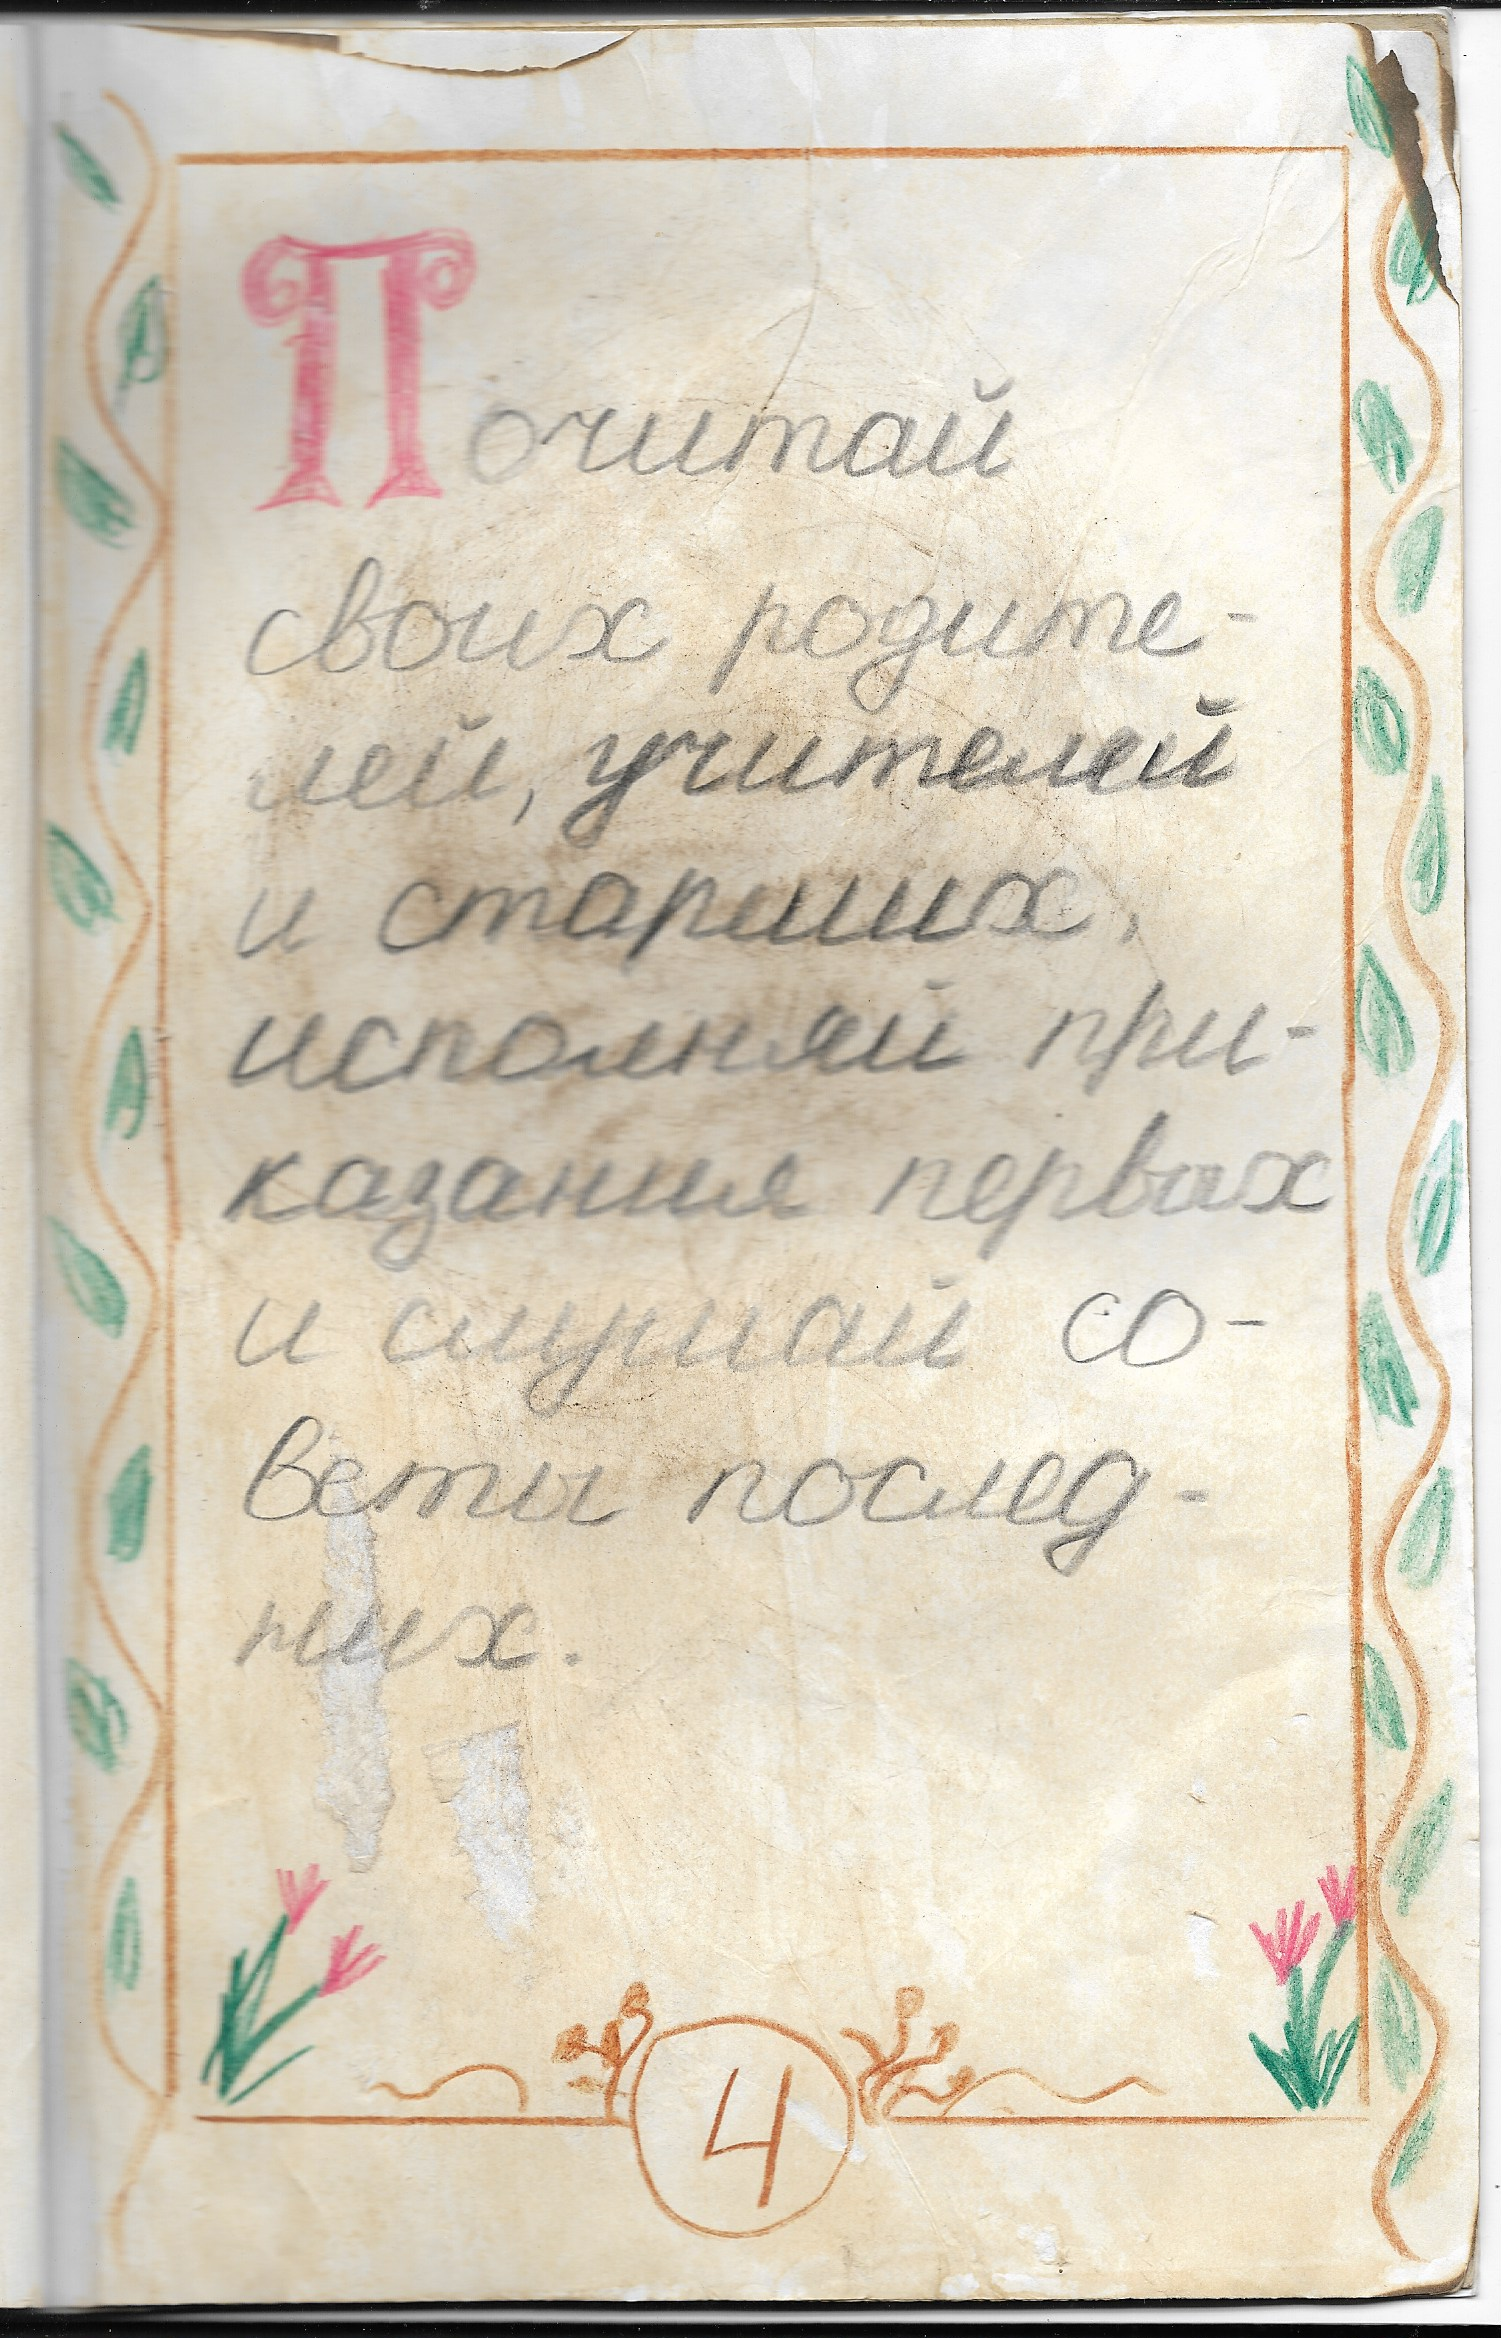 Почитай
своих родите-
лей, учителей
и старших,
исполняй при-
казания первых
и слушай со-
веты послед-
них.
4